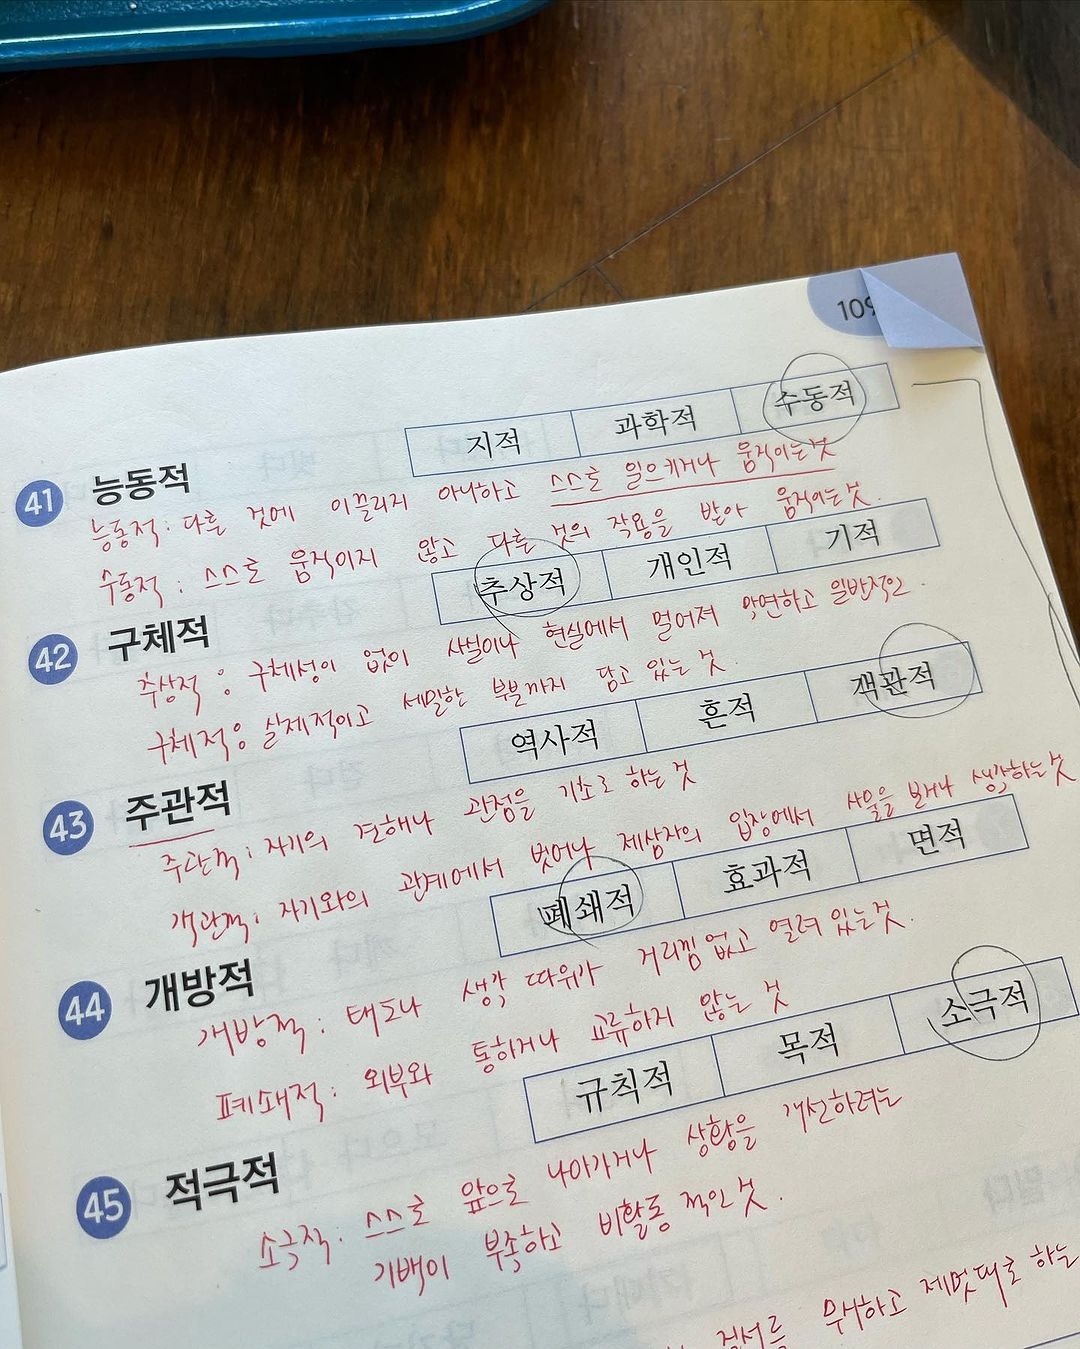 109
지적 과학적 수동적
41 능동적
능동적 : 다른 것에 이끌리지 아니하고 스스로 일으키거나 움직이는 것
수동적 : 스스로 움직이지 않고 다른 것의 작용을 받아 움직이는 것.
추상적 개인적 기적
42 구체적
추상적 : 구체성이 없이 사실이나 현실에서 멀어져 막연하고 일반적인.
구체적 : 실제적이고 세밀한 부분까지 담고 있는 것.
역사적 흔적 객관적
43 주관적
주관적 : 자기의 견해나 관점을 기초로 하는 것
객관적 : 자기와의 관계에서 벗어나 제삼자의 입장에서 사물을 보거나 생각하는 것
폐쇄적 효과적 면적
44 개방적
개방적 : 태도나 생각 따위가 거리낌 없고 열려 있는 것.
폐쇄적 : 외부와 통하거나 교류하지 않는 것
규칙적 목적 소극적
45 적극적
소극적 : 스스로 앞으로 나아가거나 상황을 개선하려는
기백이 부족하고 비활동적인 것.
질서를 무시하고 제멋대로 하는